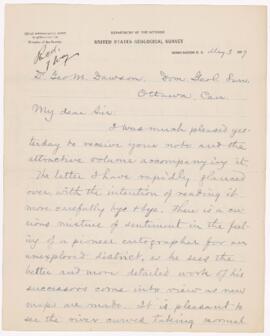 DEPARTMENT OF THE INTERIOR
UNITED STATES GEOLOGICAL SURVEY
WASHINGTON, D. C. May 3
Dr. Geo. M. Dawson. Dom. Geol. Surv.
Ottawa, Can.
My dear Sir.
I was much pleased yes-
terday to receive your note and the
attractive volume accompanying it.
The latter I have rapidly glanced
over, with the intention of reading it
more carefully bye & bye. There is a cu-
rious mixture of sentiment in the feel-
ing of a pioneer cartographer for an
unexplored district, as he sees the
better and more detailed work of his
successors come into view as new
maps are made. It is pleasant to
see the river curves taking normal